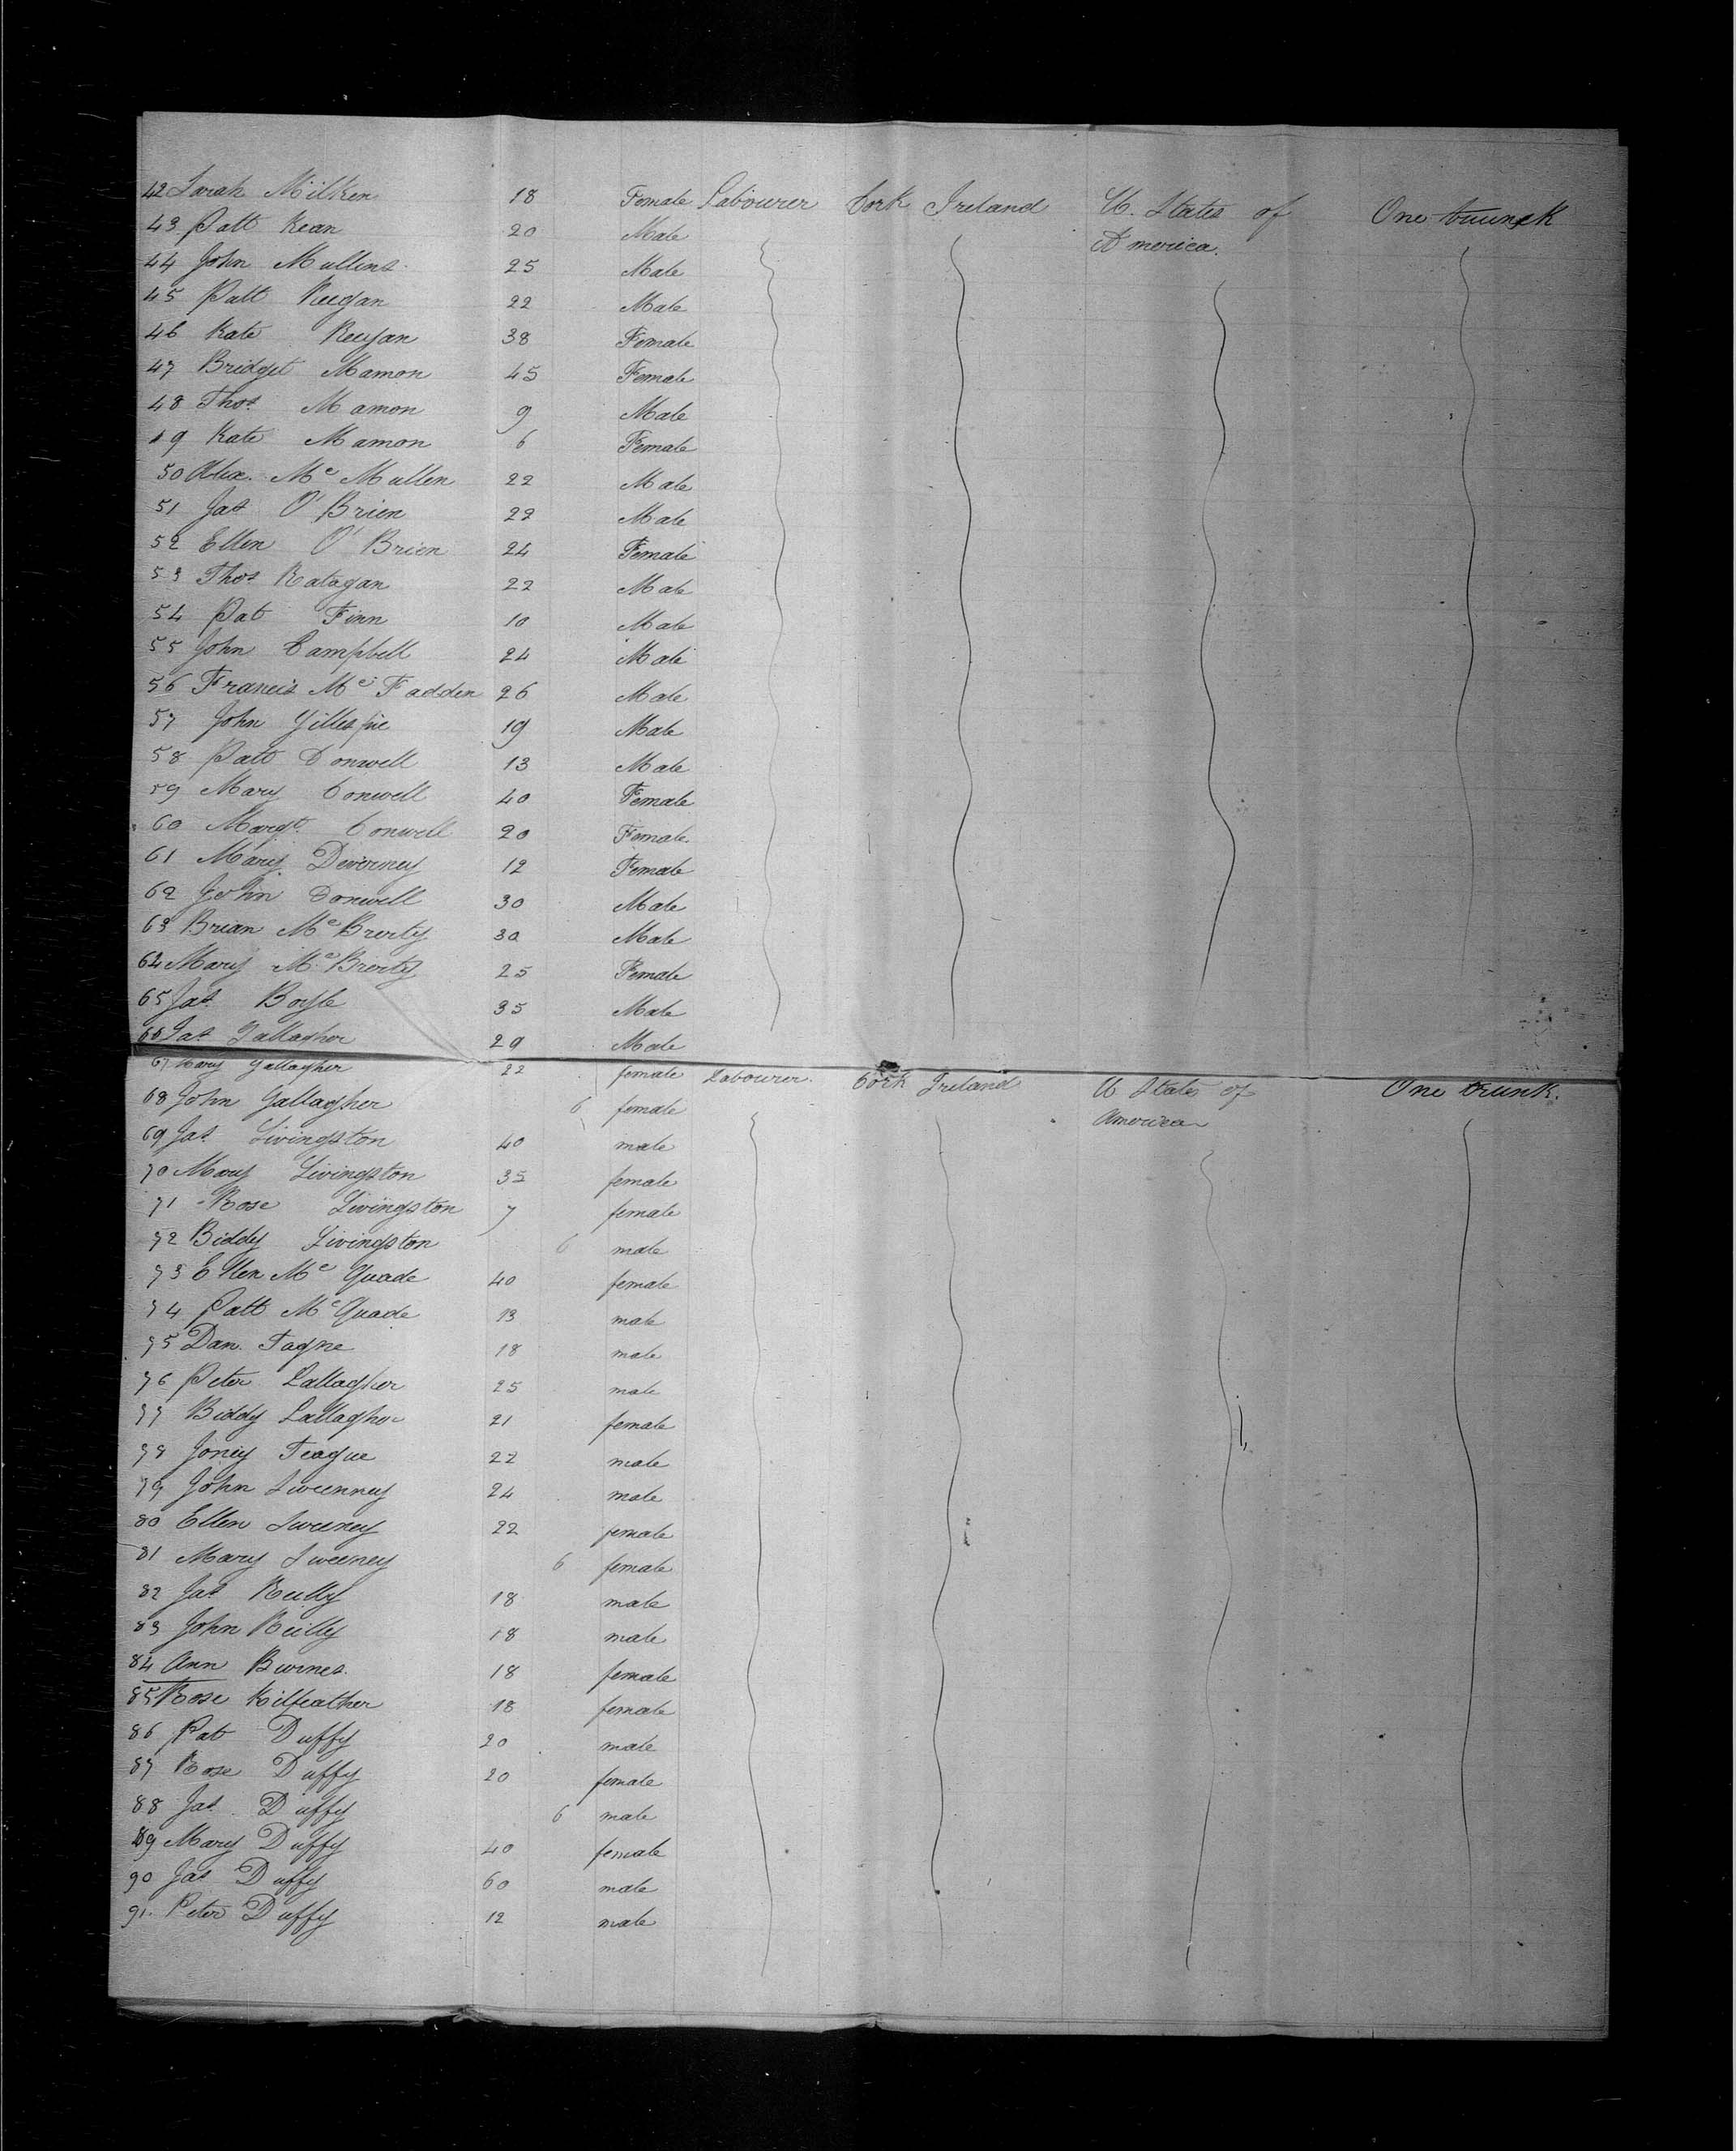 42 Sarah Milken 18 Female Labourer Cork Ireland U. States of One trunk
43 Patt Kean 20 Male America.
44 John Mullins 25 Male
45 Patt Keegan 22 Male
46 Kate Keegan 38 Female
47 Bridget Mamon 45 Female
48 Thos. Mamon 9 Male
49 Kate Mamon 6 Female
50 Alex. Mc Mullen 22 Male
51 Jas O'Brien 22 Male
52 Ellen O'Brien 24 Female
53 Thos Ratagan 22 Male
54 Pat Finn 10 Male
55 John Campbell 24 Male
56 Francis Mc Fadden 26 Male
57 John Gillespie 19 Male
58 Patt Conwell 13 Male
59 Mary Conwell 40 Female
60 Margt. Conwell 20 Female
61 Mary Deverney 12 Female
62 John Conwell 30 Male
63 Brian Mc Brerty 30 Male
64 Mary Mc Brerty 25 Female
65 Jas Boyle 35 Male
66 Jas Gallagher 29 Male
67 Mary Gallagher 22 female Labourer Cork Ireland U States of One trunk.
68 John Gallagher 6 female America
69 Jas Livingston 40 male
70 Mary Livingston 35 female
71 Rose Livingston 7 female
72 Biddy Livingston 6 male
73 Ellen Mc Quade 40 female
74 Patt Mc Quade 13 male
75 Dan. Tagne 18 male
76 Peter Gallagher 25 male
77 Biddy Gallagher 21 female
78 Joney Teague 22 male
79 John Sweenney 24 male
80 Ellen Sweeney 22 female
81 Mary Sweeney 6 female
82 Jas Reilly 18 male
83 John Reilly 18 male
84 Ann Burnes. 18 female
85 Rose Kilfeather 18 female
86 Pat Duffy 20 male
87 Rose Duffy 20 female
88 Jas Duffy 6 male
89 Mary Duffy 40 female
90 Jas Duffy 60 male
91. Peter Duffy 12 male